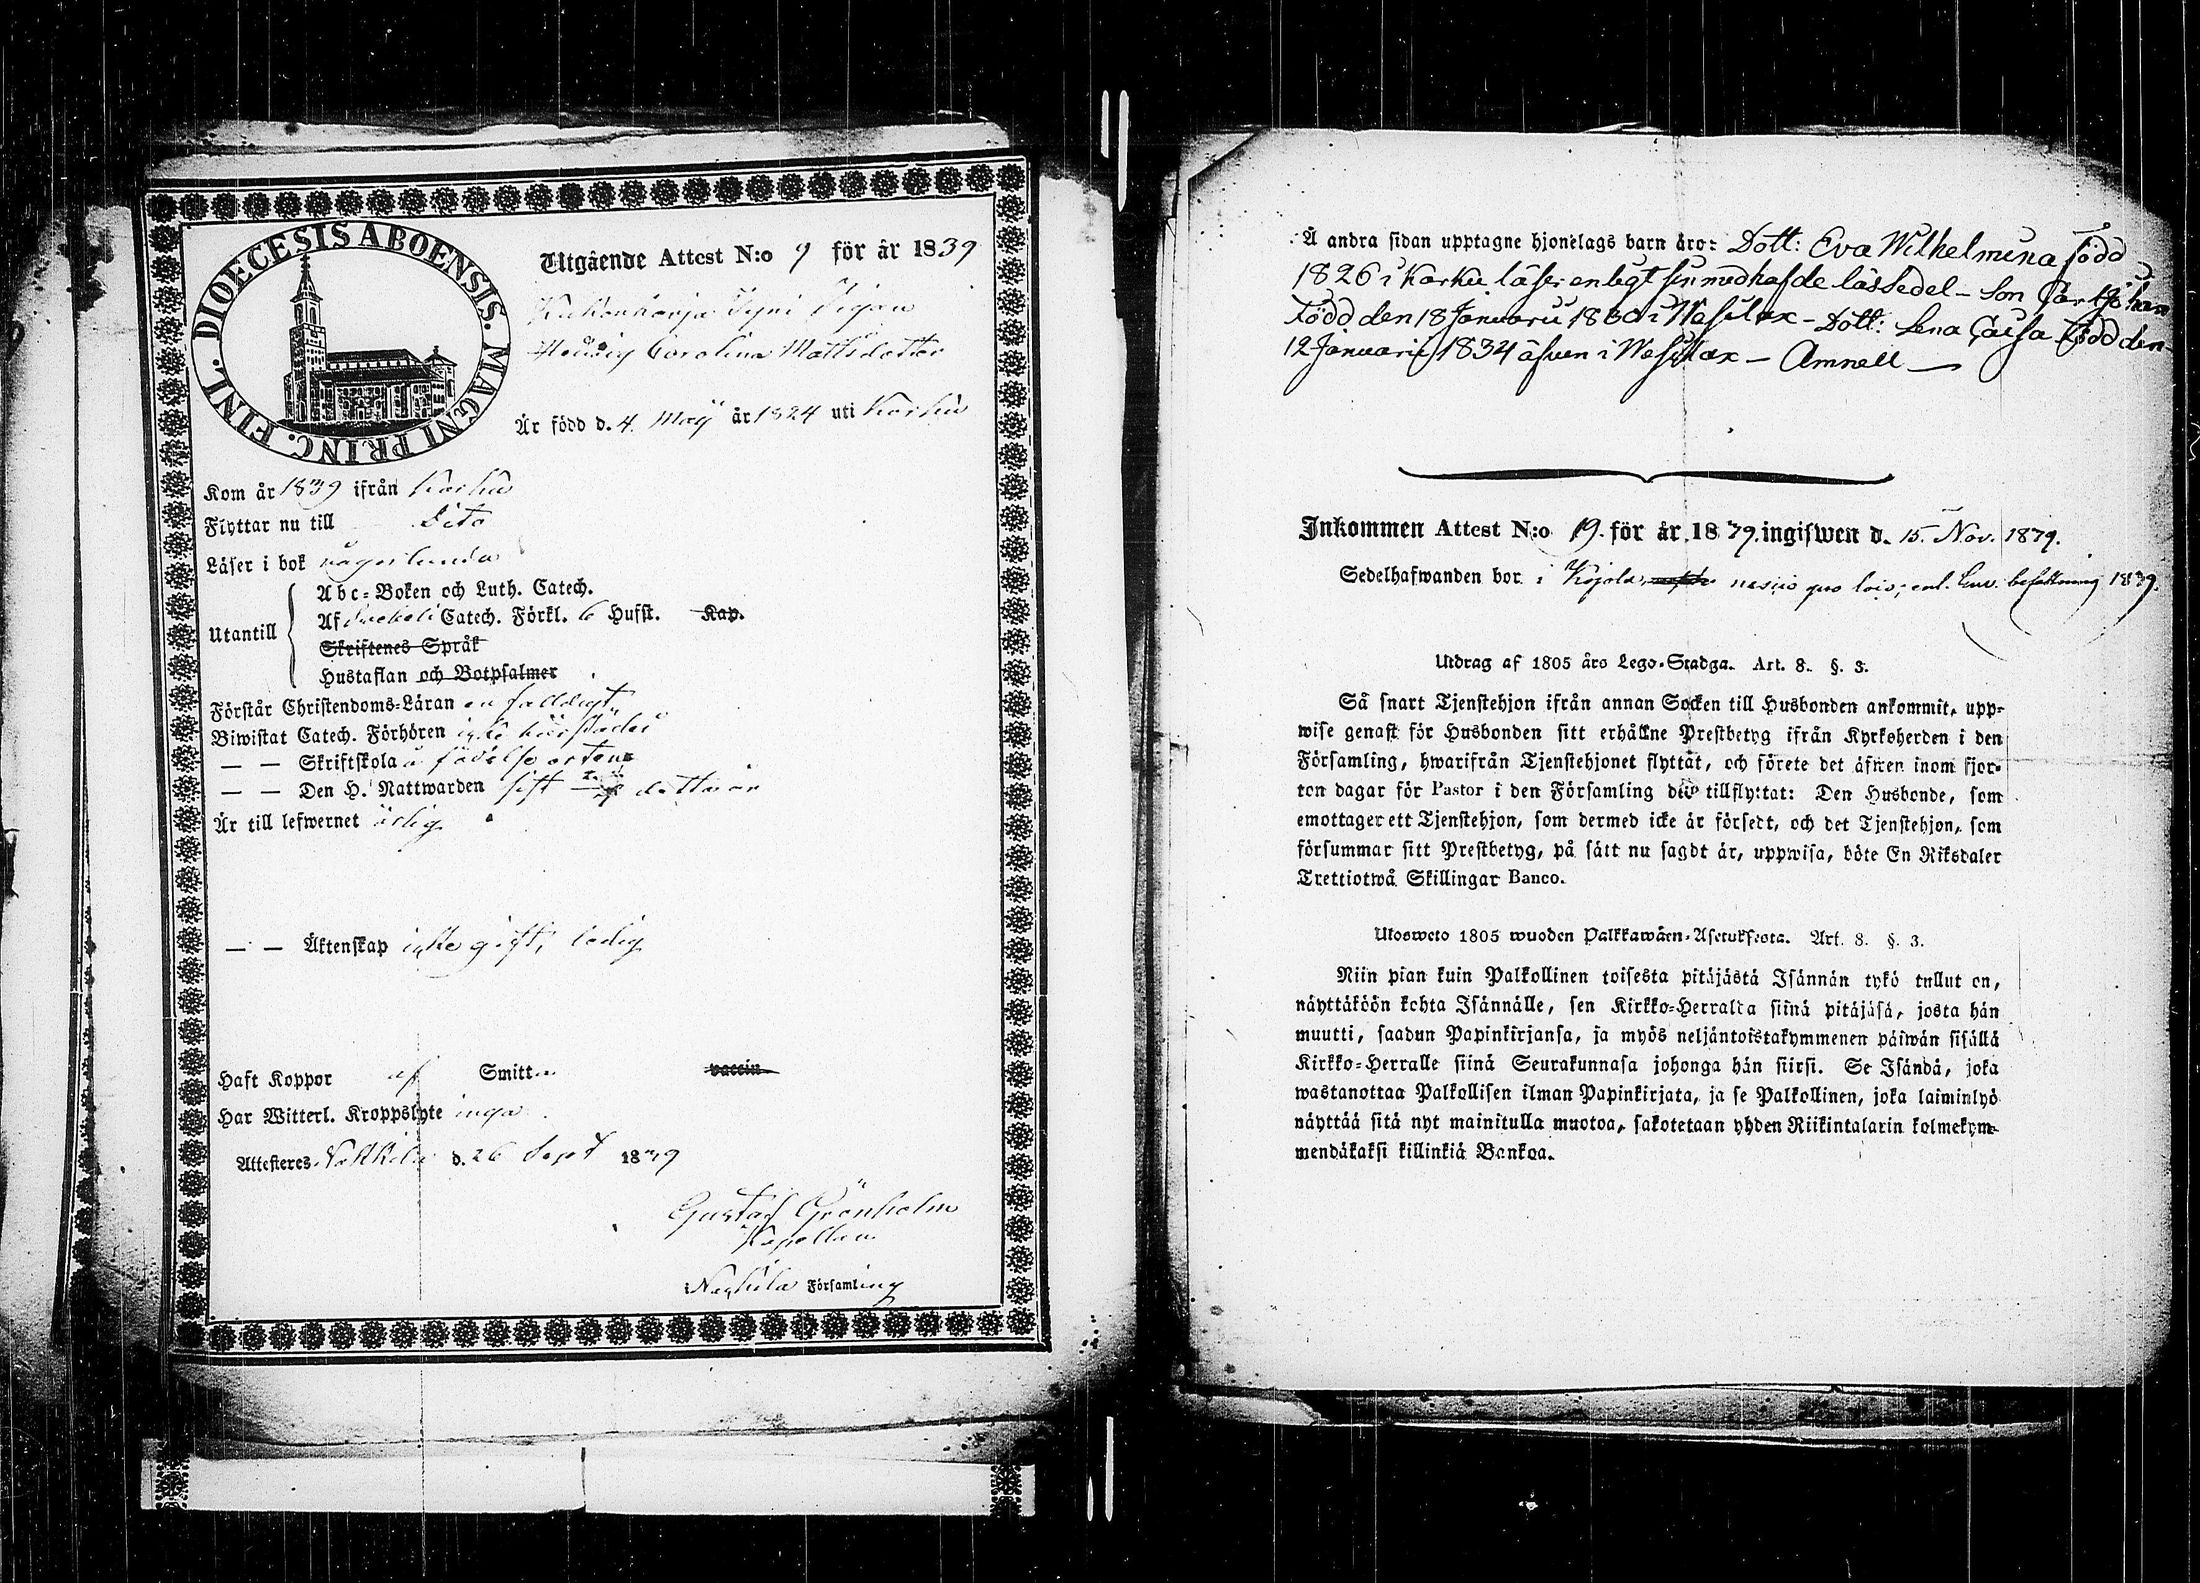 DIOECESIS ABOENSIS. MAGNI PRINC. FINL.
Utgående Attest N:o 9 för år 1839
Hedvig Carolina Mattsdotter
Är född d. 4. Maij år 1824 uti Karku
Kom år 1839 ifrån Karku
Flyttar nu till Dito
Läser i bok någorlunda
Utantill
Abc-Boken och Luth. Catech.
Af Catech. Förkl. 6 Hufst. Kap.
Skriftenes Språk
Hustaflan och Botpsalmer
Förstår Christendoms-Läran enfalldigt
Biwistat Catech. Förhören icke härstädes
— — Skriftskola å födelse orten
— — Den H. Nattwarden sist detta år
Är till lefwernet ärlig
— — Äktenskap icke gift, ledig
Haft Koppor af Smitta vaccin
Har Witterl. Kroppslyte inga
Attesteres d. 26 Sept 1839
Gustaf Grönholm
Kapellan
Församling
Å andra sidan upptagne hjonelags barn äro: Dott: Eva Wilhelmina född
1826 i Karku läser enligt sin medhafde lässedel – Son Carl Johan
Född den 18 Januarii 1830 i Wesilax – Dott: Lena Cajsa Född den
12 Januarii 1834 äfven i Wesilax — Amnell —
Inkommen Attest N:o 19. för år 1879. ingifwen d. 15. Nov. 1879.
Sedelhafwanden bor i nescio quo loco; enl. befattning 1839.
Utdrag af 1805 års Lego-Stadga. Art. 8. §. 3.
Så snart Tjenstehjon ifrån annan Socken till Husbonden ankommit, upp-
wise genast för Husbonden sitt erhållne Prestbetyg ifrån Kyrkoherden i den
Församling, hwarifrån Tjenstehjonet flyttat, och förete det äfven inom fjor-
ton dagar för Pastor i den Församling dit tillflyttat: Den Husbonde, som
emottager ett Tjenstehjon, som dermed icke är försedt, och det Tjenstehjon, som
försummar sitt Prestbetyg, på sätt nu sagdt är, uppwisa, böte En Riksdaler
Trettiotwå Skillingar Banco.
Ulosweto 1805 wuoden Palkkawäen-Asetuksesta. Art. 8. §. 3.
Niin pian kuin Palkollinen toisesta pitäjästä Isännän tykö tullut on,
näyttäköön kohta Isännälle, sen Kirkko-Herralta siinä pitäjäsä, josta hän
muutti, saadun Papinkirjansa, ja myös neljäntoistakymmenen päiwän sisällä
Kirkko-Herralle siinä Seurakunnasa johonga hän siirsi. Se Isändä, joka
wastanottaa Palkollisen ilman Papinkirjata, ja se Palkollinen, joka laiminlyö
näyttää sitä nyt mainitulla muotoa, sakotetaan yhden Riikintalarin kolmekym-
mendäkaksi killinkiä Bankoa.